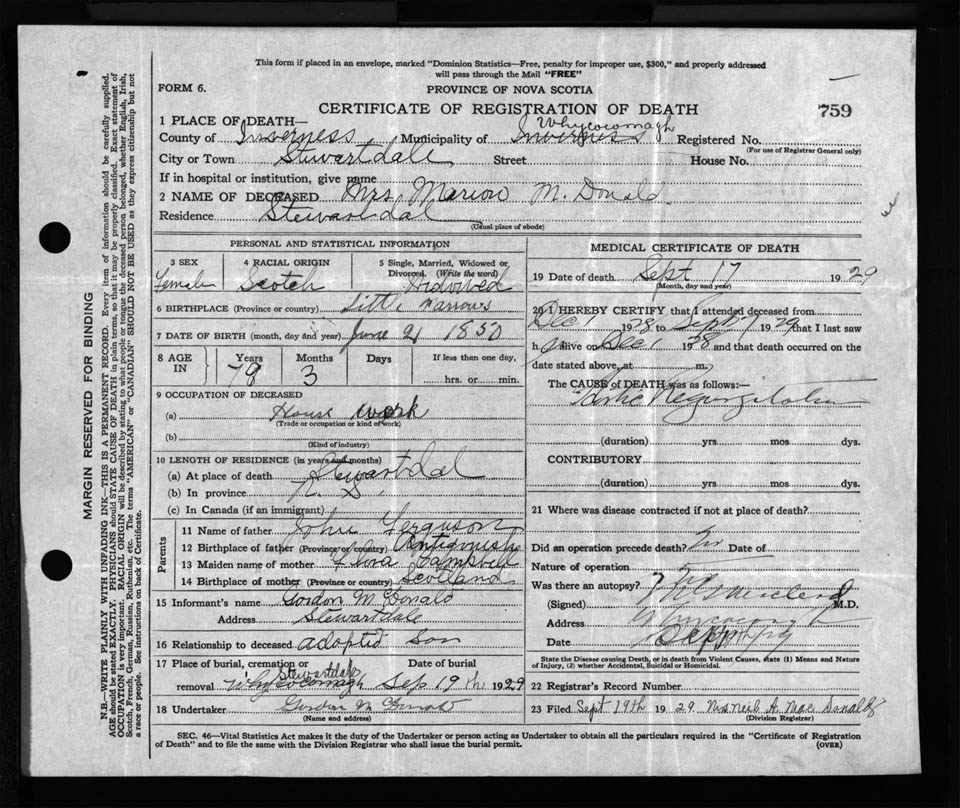 This form if placed in an envelope, marked "Dominion Statistics—Free, penalty for improper use, $300," and properly addressed
will pass through the Mail "FREE"
FORM 6.
PROVINCE OF NOVA SCOTIA
CERTIFICATE OF REGISTRATION OF DEATH
759
1 PLACE OF DEATH—
Whycocomagh
County of Inverness Municipality of Inverness Registered No.
(For use of Registrar General only)
City or Town Stewartdale Street House No.
If in hospital or institution, give name
2 NAME OF DECEASED Mrs Marion McDonald
Residence Stewartdal
(Usual place of abode)
PERSONAL AND STATISTICAL INFORMATION
3 SEX
Female
4 RACIAL ORIGIN
Scotch
5 Single, Married, Widowed or
Divorced. (Write the word)
Widowed
6 BIRTHPLACE (Province or country) Little Narrows
7 DATE OF BIRTH (month, day and year) June 21 1850
8 AGE
IN
Years
79
Months
3
Days
If less than one day,
hrs. or min.
9 OCCUPATION OF DECEASED
(a) House work
(Trade or occupation or kind of work)
(b)
(Kind of industry)
10 LENGTH OF RESIDENCE (in years and months)
(a) At place of death Stewartdal
(b) In province N. S.
(c) In Canada (if an immigrant)
Parents
11 Name of father John Ferguson
12 Birthplace of father (Province or country) Antigonish
13 Maiden name of mother Flora Campbell
14 Birthplace of mother (Province or country) Scotland
15 Informant's name Gordon McDonald
Address Stewartdale
16 Relationship to deceased adopted Son
17 Place of burial, cremation or Date of burial
Stewartdale
removal Whycocomagh Sep 19 the 1929
18 Undertaker Gordon McDonald
(Name and address)
MEDICAL CERTIFICATE OF DEATH
19 Date of death Sept 17 1929
(Month, day and year)
20 I HEREBY CERTIFY that I attended deceased from
Dec 1 1928 to Sept 7 1929 that I last saw
h alive on Dec 1 1928 and that death occurred on the
date stated above, at m.
The CAUSE of DEATH was as follows:—
Regurgitation
(duration) yrs mos dys.
CONTRIBUTORY
(duration) yrs mos dys.
21 Where was disease contracted if not at place of death?
Did an operation precede death? no Date of
Nature of operation
Was there an autopsy? no
(Signed) MacLeod M.D.
Address Whycocomagh
Date Sept
State the Disease causing Death, or in death from Violent Causes, state (1) Means and Nature
of Injury, (2) whether Accidental, Suicidal or Homicidal.
22 Registrar's Record Number
23 Filed Sept 19th 1929. Mrs Neil A. MacDonald
(Division Registrar)
SEC. 46—Vital Statistics Act makes it the duty of the Undertaker or person acting as Undertaker to obtain all the particulars required in the "Certificate of Registration
of Death" and to file the same with the Division Registrar who shall issue the burial permit.
(OVER)
MARGIN RESERVED FOR BINDING
N.B.—WRITE PLAINLY WITH UNFADING INK—THIS IS A PERMANENT RECORD. Every item of information should be carefully supplied.
AGE should be stated EXACTLY. PHYSICIANS should STATE CAUSE OF DEATH in plain terms, so that it may be properly classified. Exact statement of
OCCUPATION is very important. RACIAL ORIGIN will be described by stating to what people or tongue the deceased person belonged, whether English, Irish,
Scotch, French, German, Russian, Ruthenian, etc. The terms "AMERICAN" or "CANADIAN" SHOULD NOT BE USED as they express citizenship but not
a race or people. See instructions on back of Certificate.